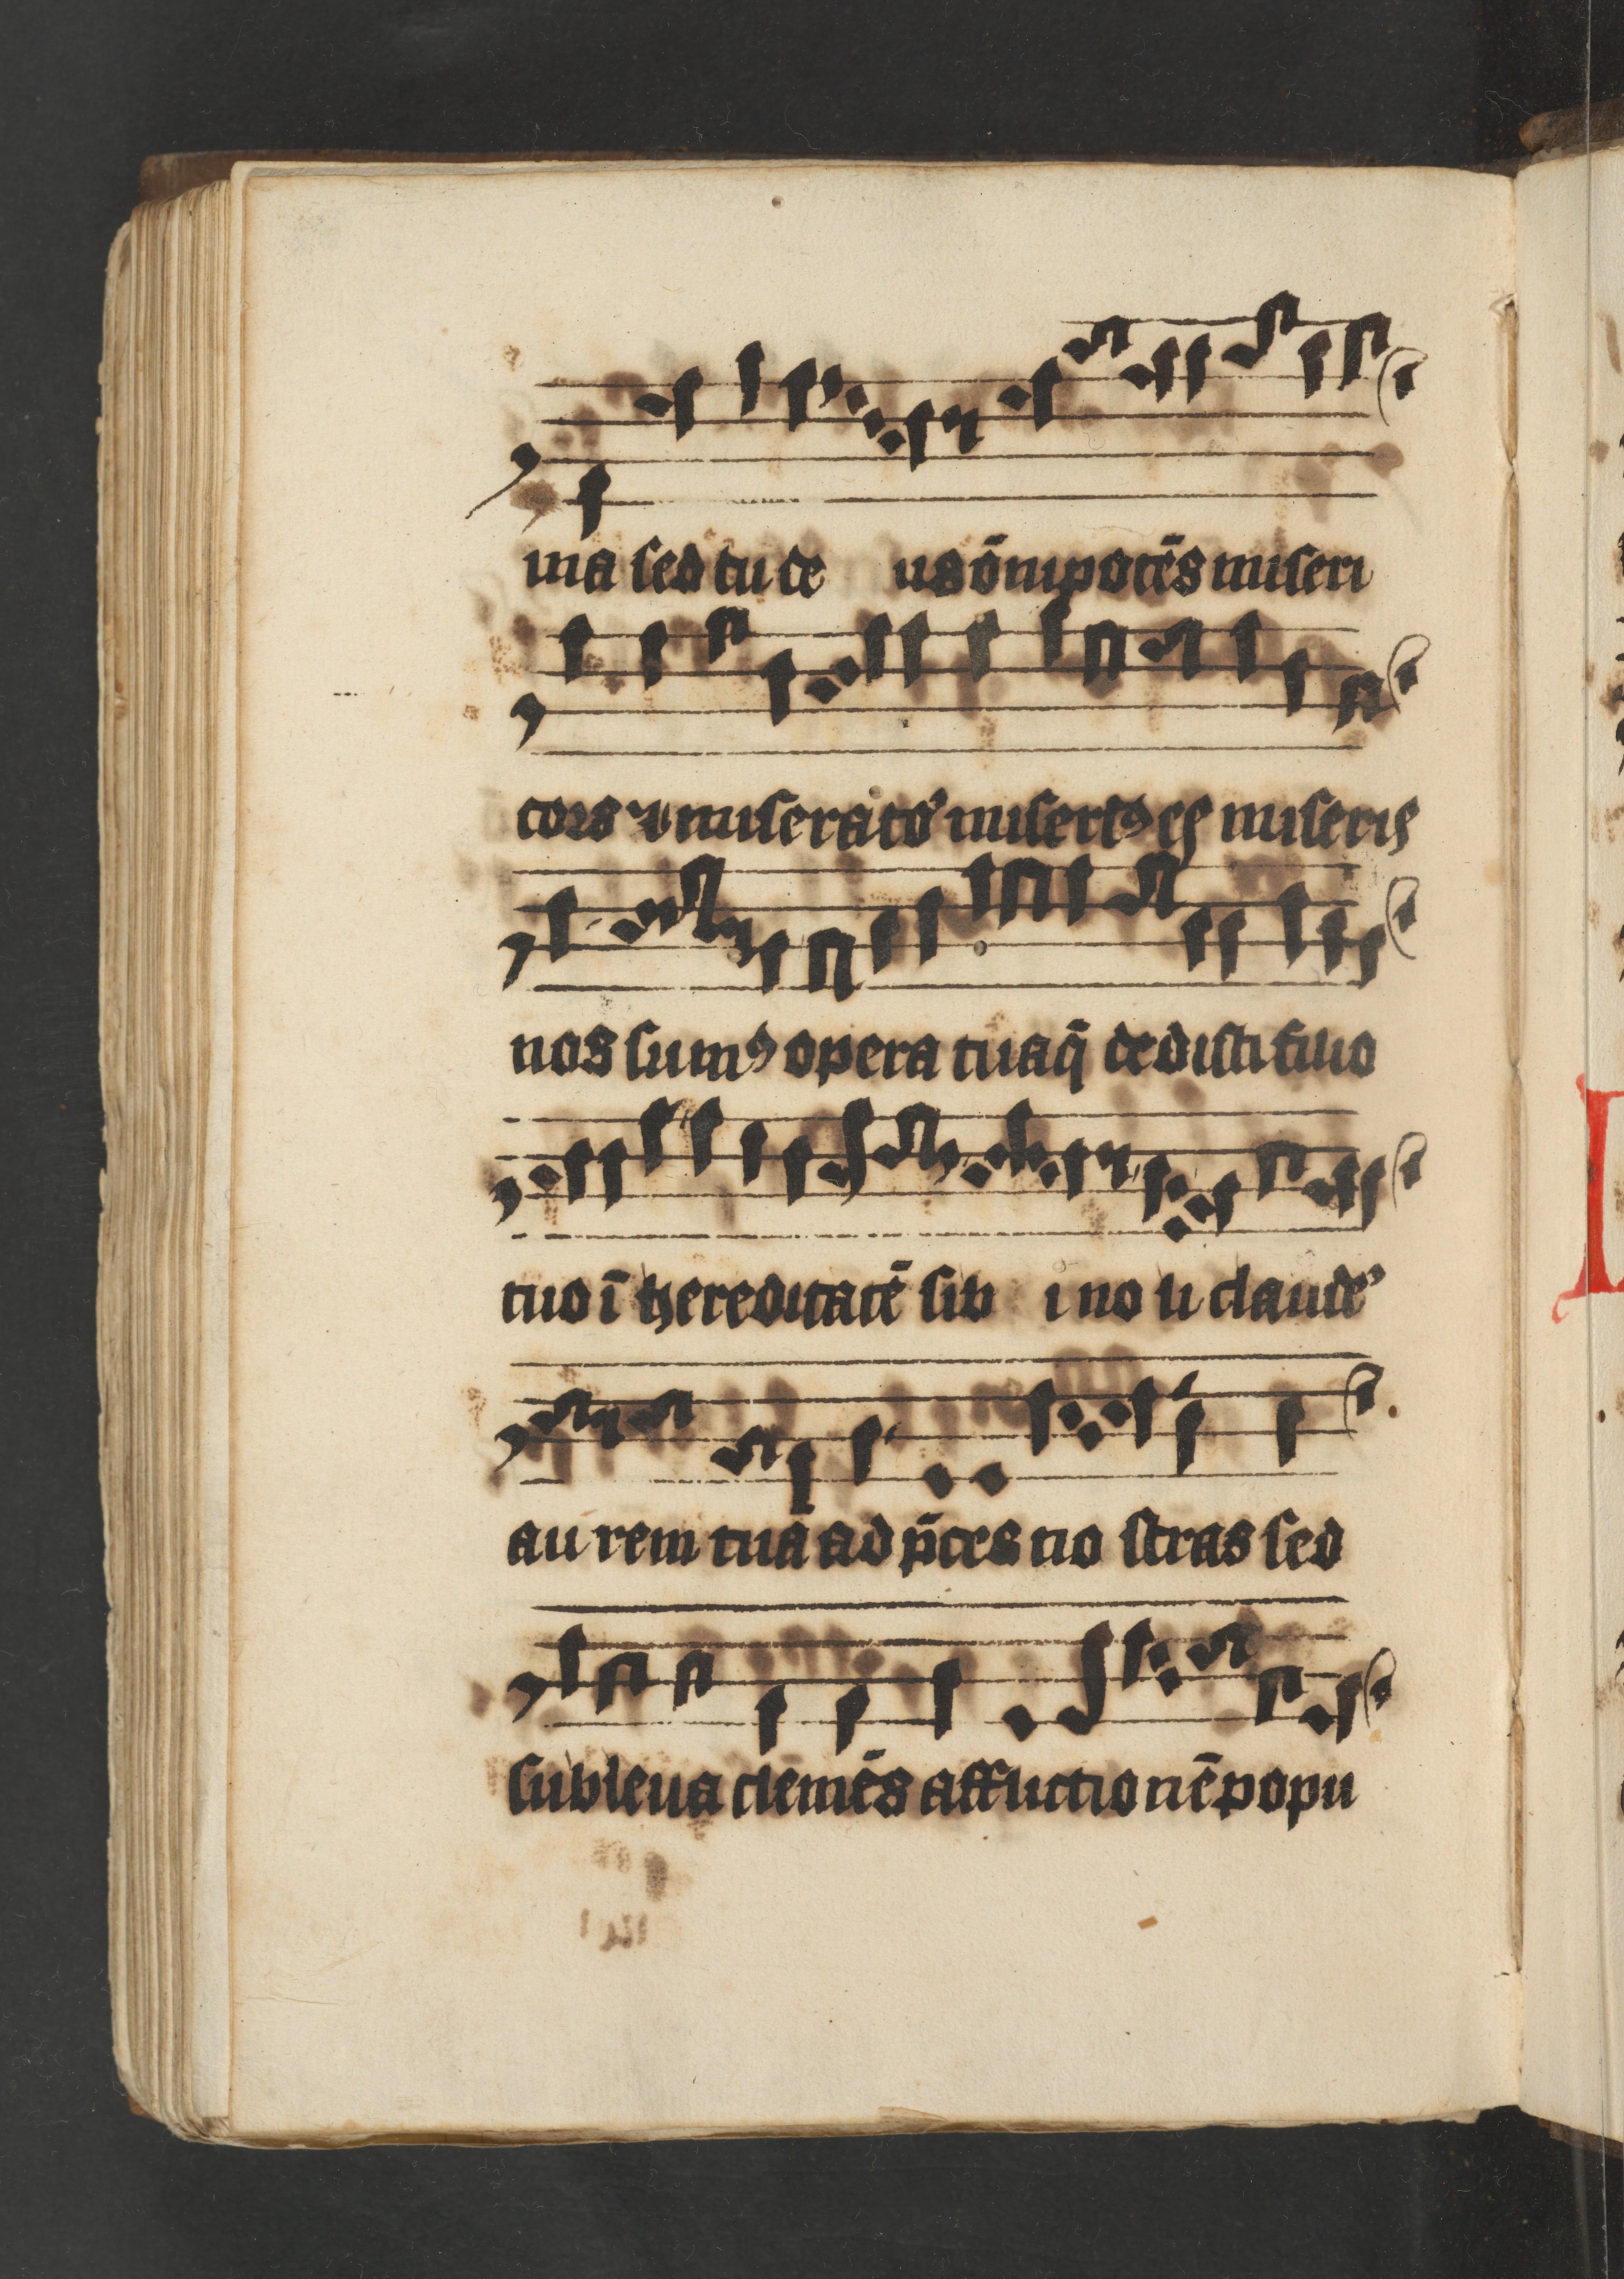 ma sed tu de us õnipotẽs miseri
cors ⁊ miserato᷑ misertꝰ es miseris
nos sumꝰ opera tua q̃ dedisti filio
tuo ĩ hereditatẽ sib i no li claude᷑
au rem tuã ad p̃ces no stras sed
subleua clemẽs afflictionẽ popu